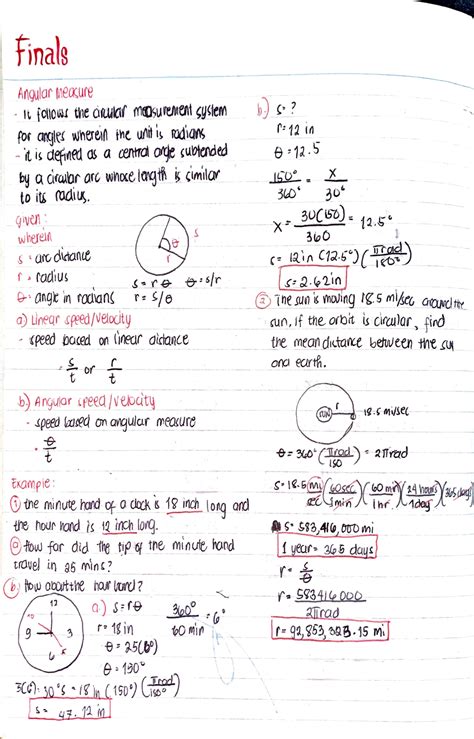 Finals
Angular Measure
- It follows the circular measurement system
for angles wherein the unit is radians
- it is defined as a central angle subtended
by a circular arc whose length is similar
to its radius.
given:
wherein
s = arc distance
r = radius
θ = angle in radians
θ
r
s
s = rθ θ = s/r
r = s/θ
a) Linear speed/velocity
- speed based on linear distance
= s/t or r/t
b) Angular speed/velocity
- speed based on angular measure
· θ/t
Example:
① the minute hand of a clock is 18 inch long and
the hour hand is 12 inch long.
ⓐ How far did the tip of the minute hand
travel in 25 mins?
ⓑ How about the hour hand?
12
9 3
6
a) s = rθ
r = 18 in
θ = 25(6°)
θ = 150°
360°/60 min = 6°
s = 18 in (150°) (πrad/180°)
s = 47.12 in
b) s = ?
r = 12 in
θ = 12.5
150°/360° = x/30°
x = 30(150)/360 = 12.5°
s = 12 in (12.5°) (πrad/180°)
s = 2.62 in
② The sun is moving 18.5 mi/sec around the
sun. If the orbit is circular, find
the mean distance between the sun
and earth.
SUN
r
18.5 mi/sec
θ = 360° (πrad/180) = 2πrad
s = 18.5 mi/sec (60 sec/1 min) (60 min/1 hr.) (24 hours/1 day) (365 days)
s = 583,416,000 mi
1 year = 365 days
r = s/θ
r = 583416000/2πrad
r = 92,853,323.15 mi